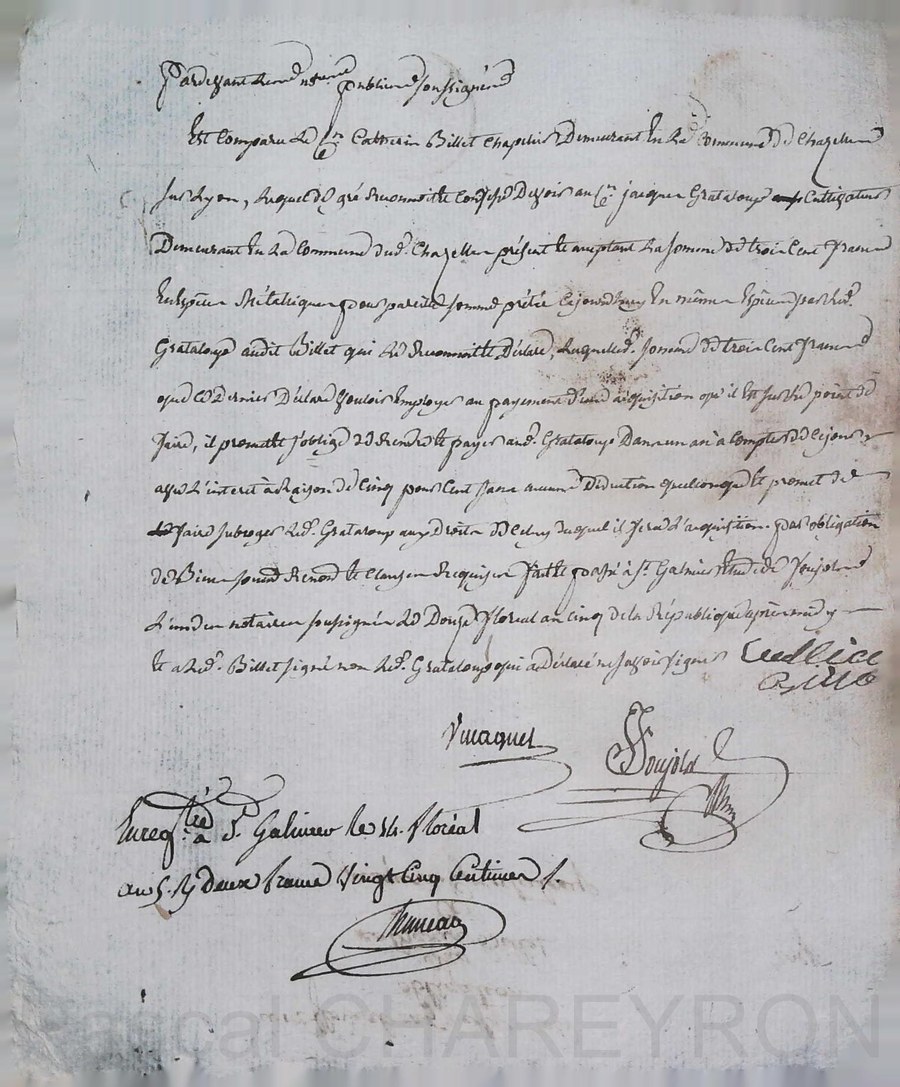 Pardevant les notaires publics soussignés
Est Comparu le Cen Catherin Billet Chapelier Demeurant En La Commune de Chazelles
sur Lyon, Lequel de gré Reconnoit et Confesse Devoir au Cen jacques Grataloup Cultivateur
Demeurant En La Commune dud. Chazelles présent et acceptant La somme de trois Cent francs
En Espèces Métalliques pour pareille somme prêtée Cejourd'huy En mêmes Espèces par led.
Grataloup audit Billet qui Le Reconnoit et Déclare, Laquelle d. somme de trois Cent francs
que Ce Dernier Déclare vouloir Employer au payement d'une acquisition qu'il Est sur le point de
faire, il promet et s'oblige de Rendre et payer aud. Grataloup Dans un an à Compter de Cejour
avec L'interet à Raison de Cinq pour Cent sans aucune Déduction quelconque et promet de
faire subroger Led. Grataloup aux Droits de Celuy duquel il fera L'acquisition. par obligation
de Biens soumis Renond et Clauses Requises fait et passé à St. Galmier Etude de Poujols
L'un des notaires soussignés Le Douze floréal an Cinq de la République après midy
Et a Led. Billet signé non Led. Grataloup qui a Déclaré ne savoir signer
Enregtré à St. Galmier le 14. floréal
an 5. R/ deux francs Vingt Cinq Centimes /.
Pascal CHAREYRON